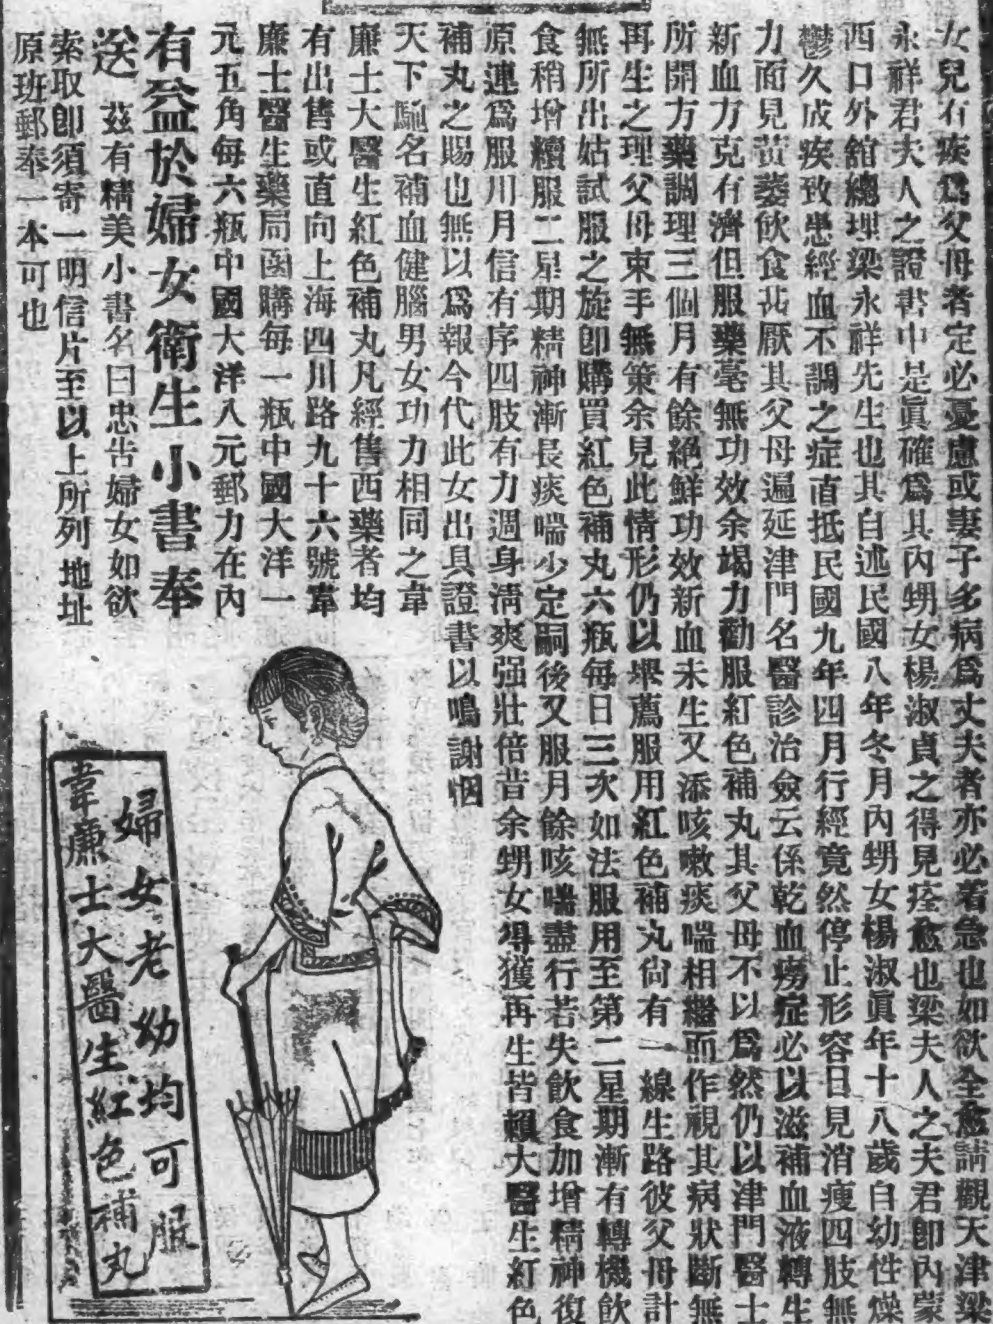 女兒有疾爲父母者定必憂慮或妻子多病爲丈夫者亦必着急也如欲全愈請觀天津梁
永祥君夫人之證書中是眞確爲其內甥女楊淑貞之得見痊愈也梁夫人之夫君卽內蒙
西口外舘總理梁永祥先生也其自述民國八年冬月內甥女楊淑眞年十八歲自幼性燥
鬱久成疾致患經血不調之症直抵民國九年四月行經竟然停止形容日見消瘦四肢無
力面見黃萎飲食甚厭其父母遍延津門名醫診治僉云係乾血癆症必以滋補血液轉生
新血力克有濟但服藥毫無功效余竭力勸服紅色補丸其父母不以爲然仍以津門醫士
所開方藥調理三個月有餘絕鮮功效新血未生又添咳嗽痰喘相繼而作視其病狀斷無
再生之理父母束手無策余見此情形仍以舉薦服用紅色補丸尙有一線生路彼父母計
無所出姑試服之旋卽購買紅色補丸六瓶每日三次如法服用至第二星期漸有轉機飲
食稍增續服二星期精神漸長痰喘少定嗣後又服月餘咳喘盡行若失飲食加增精神復
原連爲服川月信有序四肢有力週身淸爽强壯倍昔余甥女得獲再生皆賴大醫生紅色
補丸之賜也無以爲報今代此女出具證書以鳴謝悃
天下馳名補血健腦男女功力相同之韋
廉士大醫生紅色補丸凡經售西藥者均
有出售或直向上海四川路九十六號韋
廉士醫生藥局函購每一瓶中國大洋一
元五角每六瓶中國大洋八元郵力在內
有益於婦女衛生小書奉
送 茲有精美小書名曰忠告婦女如欲
索取卽須寄一明信片至以上所列地址
原班郵奉一本可也
婦女老幼均可服
韋廉士大醫生紅色補丸